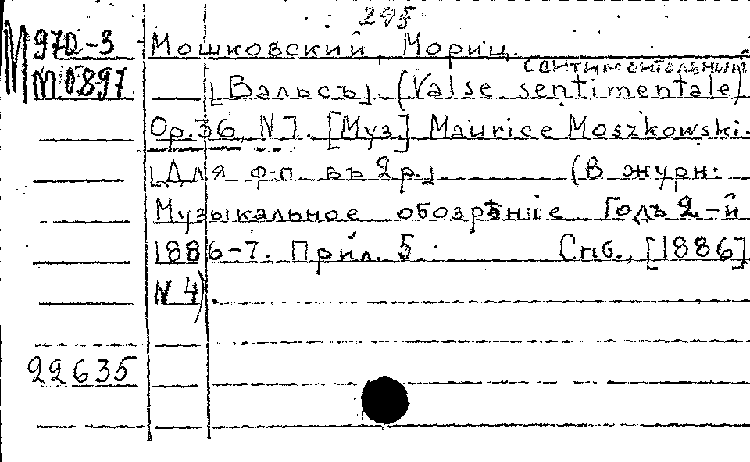 295
М 970-3 Мошковский, Мориц.
М0897 сантиментальный
[Вальсъ]. (Valse sentimentale)
Op. 36, N 7. [Муз.] Maurice Moszkowski.
[Для ф-п. въ 2 р.] (В журн:
Музыкальное обозрѣніе Годъ 2-й
1886-7. Прил. 5. Спб., [1886]
N 4).
22635